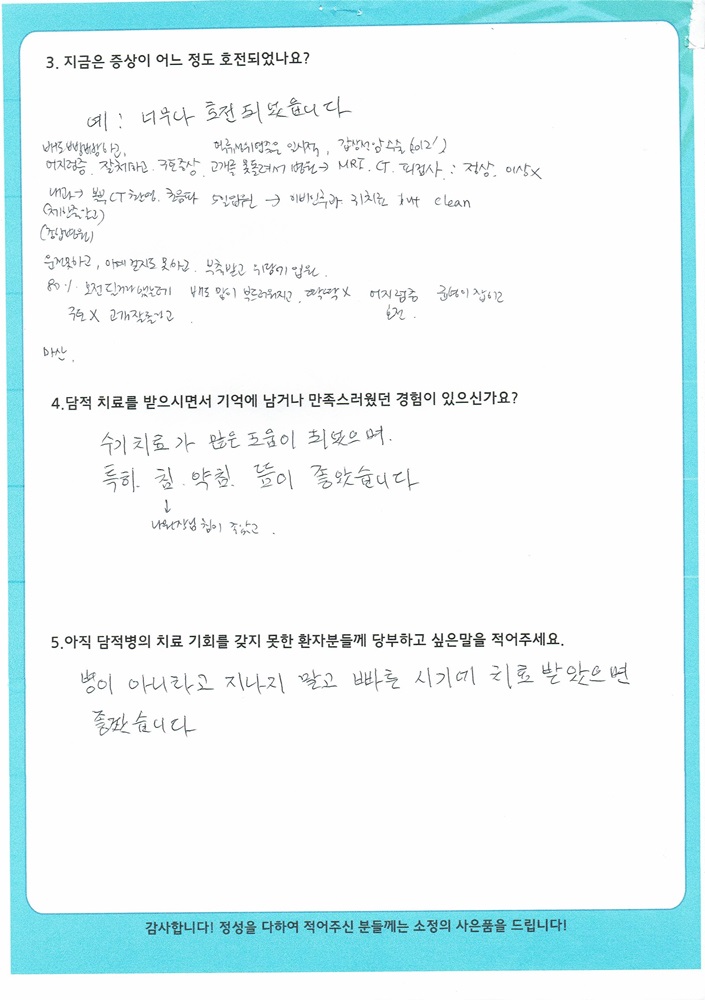 3. 지금은 증상이 어느 정도 호전되었나요?
예! 너무나 호전 되었습니다
배도 빵빵하고,
갑상선암 수술 (2012')
어지럼증, 잘체하고, 구토증상, 고개를 못돌려서 병원→ MRI. CT. 피검사 : 정상, 이상X
내과→ CT 촬영. 초음파 5일입원 → 이비인후과 귀치료 but clean
운전못하고, 걷지도 못하고. 부축받고 입원.
80% 호전 배도 많이 부드러워지고, 딱딱X 어지럼증 균형이 잡히고
호전.
구토X 고개잘돌리고.
마산.
4.담적 치료를 받으시면서 기억에 남거나 만족스러웠던 경험이 있으신가요?
수기치료가 많은 도움이 되었으며.
특히. 침. 약침. 뜸이 좋았습니다
↓
침이 좋았고.
5.아직 담적병의 치료 기회를 갖지 못한 환자분들께 당부하고 싶은말을 적어주세요.
병이 아니라고 지나지 말고 빠른 시기에 치료 받았으면
좋겠습니다
감사합니다! 정성을 다하여 적어주신 분들께는 소정의 사은품을 드립니다!